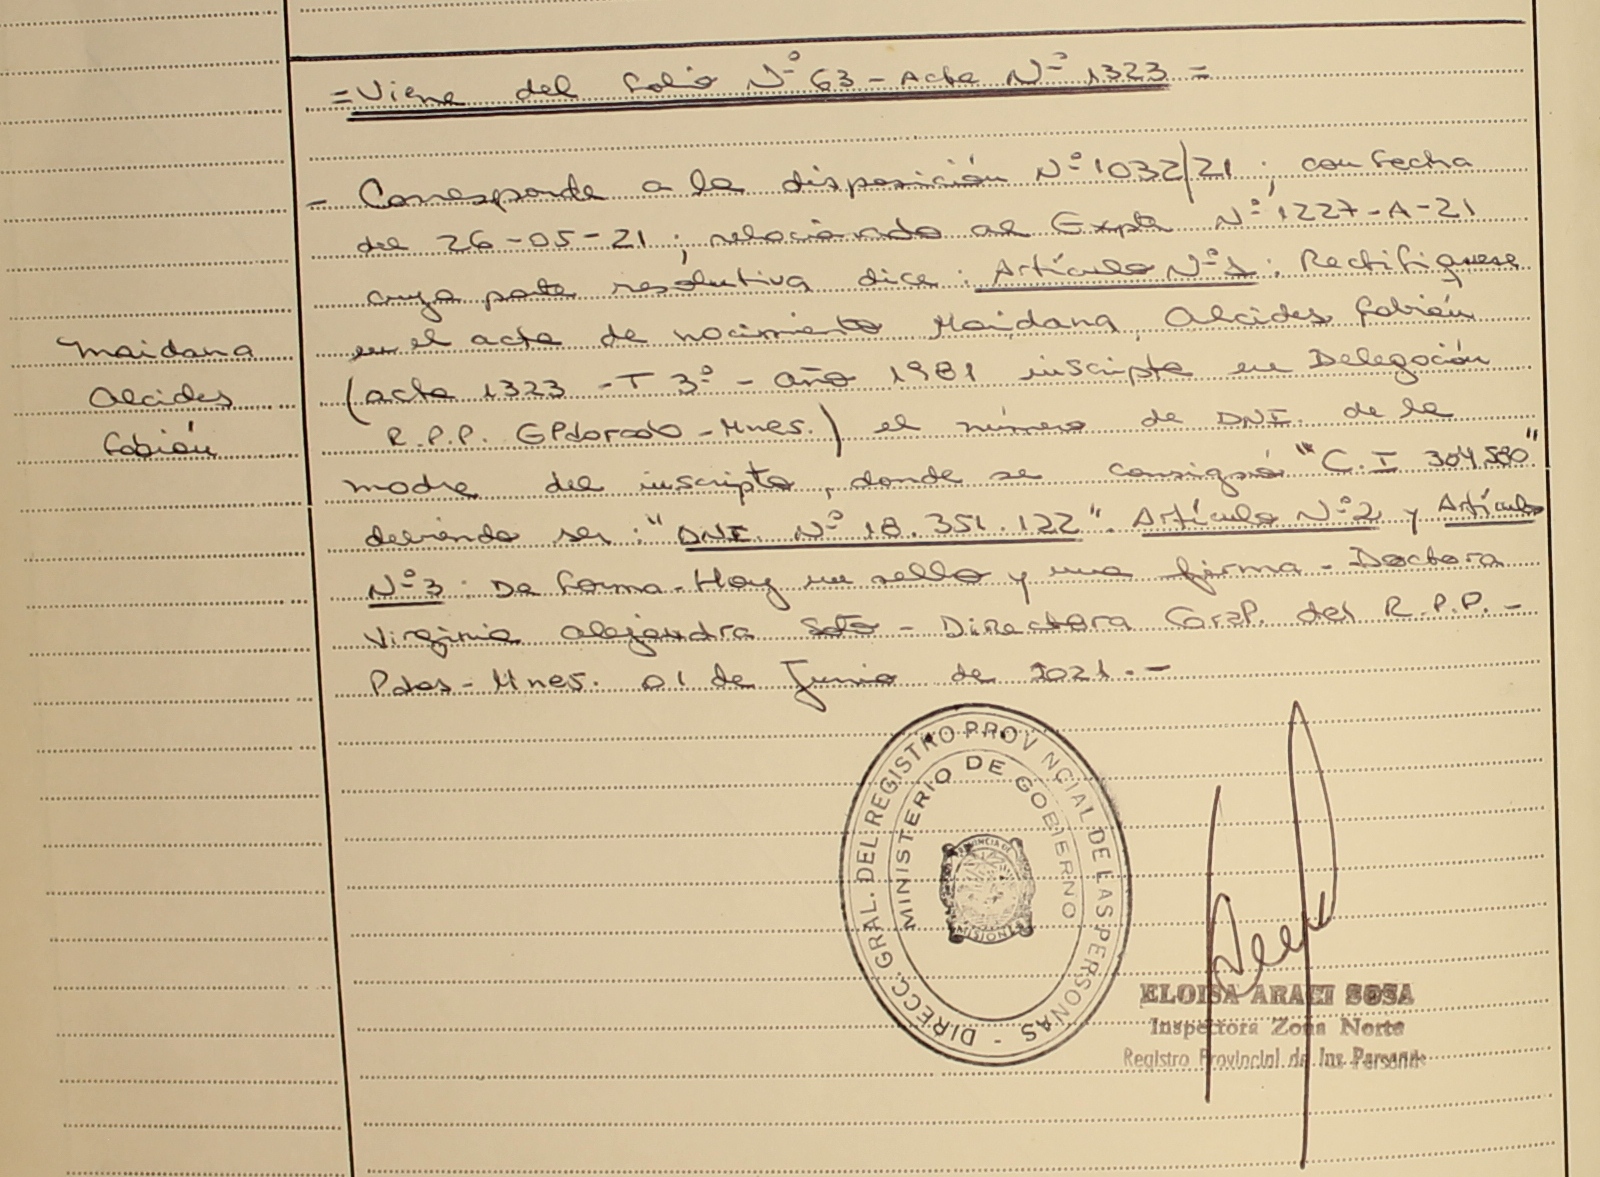 = Viene del folio Nº 63 - Acta Nº 1323 =
- Corresponde a la disposición Nº 1032/21 ; con fecha
del 26-05-21 ; relacionado al Expte Nº 1227-A-21
cuya parte resolutiva dice : Artículo Nº 1 : Rectifiquese
en el acta de nacimiento Maidana, Alcides Fabián
(acta 1323 - T 3º - año 1981 inscripta en Delegación
R.P.P. Eldorado - Mnes.) el número de DNI. de la
madre del inscripto, donde se consignó "C.I 304.580"
debiendo ser : "DNI Nº 18.351.122". Artículo Nº 2 y Artículo
Nº 3 : De forma - Hay un sello y una firma - Doctora
Virginia Alejandra Soto - Directora Gral. del R.P.P. -
Pdas - Mnes. 01 de Junio de 2021.-
Maidana
Alcides
Fabián
DIRECC. GRAL. DEL REGISTRO PROV NCIAL DE LAS PERSONAS -
MINISTERIO DE GOBIERNO
PROVINCIA DE
MISIONES
ELOISA ARACI SOSA
Inspectora Zona Norte
Registro Provincial de las Personas